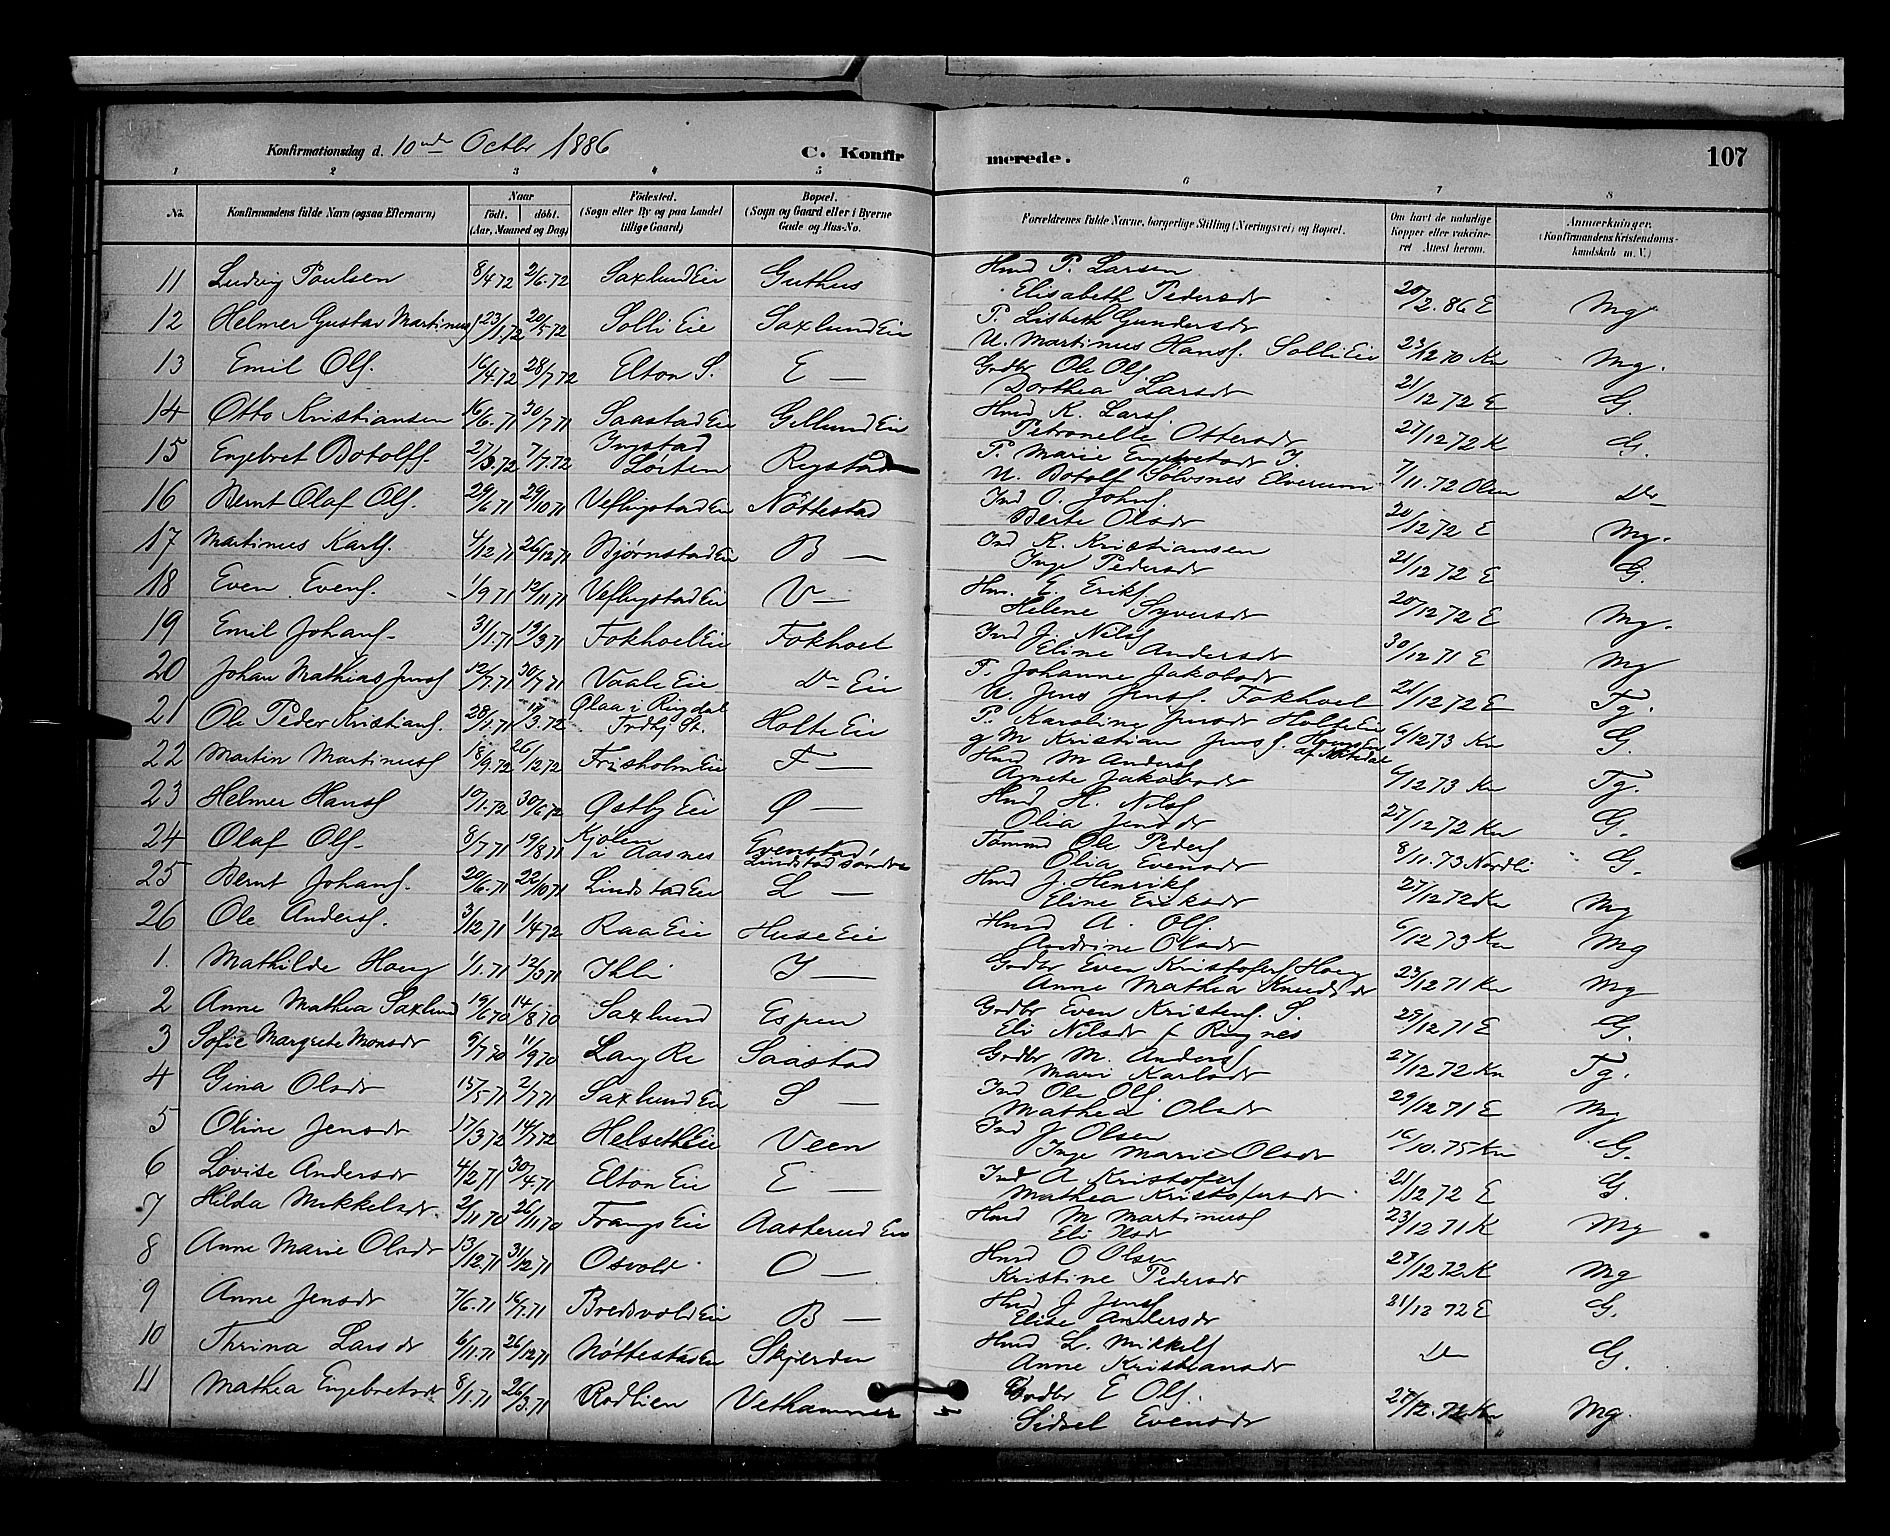 Konfirmationsdag d. 10nde Octbr 1886
C. Konfirmerede.
107
1 2 3 4 5 6 7 8
No. Konfirmandens fulde Navn (ogsaa Efternavn) Naar födt. döbt. (Aar, Maaned og Dag) Födested. (Sogn eller By og paa Landet tillige Gaard) Bopæl. (Sogn og Gaard eller i Byerne Gade og Hus-No. Forældrenes fulde Navne, borgerlige Stilling (Næringsvei) og Bopæl. Om havt de naturlige Kopper eller vakcineret Attest herom. Anmærkninger. (Konfirmandens Kristendomskundskab m. V.)
11 Ludvig Paulsen 8/4 72 2/6.72 Saxlund Eie Guthus Hmd P. Larsen Elisabeth Pedersdr 20/2.86 E Mg
12 Helmer Gustav Martinus 23/1.72 20/5 72 Solli Eie Saxlund Eie P. Lisbeth Gundersdr U. Martinus Hansf. Solli Eie 23/12 70 Kn Mg.
13 Emil Olf. 16/4.72 28/7 72 Elton S. E — Grdbr Ole Olf Dorthea Larsdr 21/12 72 E G.
14 Otto Kristiansen 16/6.71 30/7 71 Saastad Eie Gillund Eie Hmd K. Larsf. Petronelle Ottersdr 27/12 72 K G.
15 Engebret Botolff. 2/3.72 7/7.72 Ingstad Løiten Rystad P. Marie Engebretsdr I. U. Botolf Solvsnes Elverum 7/11.72 Olsen Do
16 Bernt Olaf Olf. 29/6 71 29/10 71 Veflingstad Eie Nöttestad Ind O. Johnf. Berte Olsdr 20/12 72 E Mg.
17 Martinus Karlf. 4/12 71 26/12 71 Bjørnstad Eie B — Ind K. Kristiansen Inge Pedersdr 21/12 72 E G.
18 Even Evenf. 1/9 71 12/11 71 Veflingstad Eie V — Hm. E Erikf Helene Syversdr 20/12 72 E Mg.
19 Emil Johanf. 31/1.71 19/3 71 Fokhoel Eie Fokhoel Ind J. Nilsf Eline Andersdr 30/12 71 E Mg
20 Johan Mathias Jensf 12/7.71 30/7 71 Vaale Eie Do Eie P. Johanne Jakobsdr U. Jens Jensf. Fokhoel 21/12 72 E Tg.
21 Ole Peder Kristianf. 28/1 71 17/3.72 Olaa i Ringdal Frdbj St. Holte Eie P. Karoline Jensdr Holte Eie g M Kristian Jensf. 6/12 73 Kn G.
22 Martin Martinusf 18/9.72 26/12 72 Frisholm Eie F — Hmd M Andersf Agnete Jakobsdr 6/12 73 Kn Tg.
23 Helmer Hansf 10/1.72 30/6 72 Østby Eie Ø — Hmd H. Nilsf Olia Jensdr 27/12 72 Kn G.
24 Olaf Olf. 8/7 71 19/8 71 Kjolen i Aasnes Evenstad, Lindstad søndre Tømmd Ole Pederf Olia Evensdr 8/11.73 Nordli G.
25 Bernt Johanf. 20/6.71 22/10 71 Lindstad Eie L — Hmd J. Henrikf Eline Eriksdr 27/12 72 Kn Mg
26 Ole Andersf. 3/12 71 1/4 72 Raa Eie Huse Eie Hmd A. Olf. Andrine Olsdr 6/12 73 Kn Mg
1. Mathilde Houg 1/1.71 12/3 71 Ihli I — Grdbr Even Kristoferf Houg Anne Mathea Knudsdr 23/12 71 Kn Mg
2 Anne Mathea Saxlund 19/6 70 14/8 70 Saxlund Espen Grdbr Even Kristenf. S. Eli Nilsdr f Ringnes 29/12 71 E G.
3 Sofie Margrete Monsdr 9/7 70 11/9 70 Lang Re Saastad Grdbr M. Andersf Mari Karlsdr 27/12 72 Kn Tg.
4 Gina Olsdr 15/5 71 2/7 71 Saxlund Eie S — Ind Ole Olf. Mathea Olsdr 29/12 71 E Mg
5 Oline Jensdr 17/3 72 14/7 72 Helseth Eie Veen Ind J Olsen Inge Marie Olsdr 16/10.75 Kn G.
6 Lovise Andersdr 4/2 71 30/4.71 Elton Eie E — Ind A Kristoferf Mathea Kristofersdr 21/12 72 E G
7 Hilda Mikkelsdr 2/11 70 26/11 70 Frangs Eie Aasterud Eie Hmd M Martinusf Eli Olsdr 23/12 71 K Mg
8 Anne Marie Olsdr 13/12.71 31/12 71 Osvold O — Hmd O Olsen Kristine Pedersdr 27/12 72 K Mg
9 Anne Jensdr 7/6.71 16/7.71 Bredsvold Eie B — Hmd J Jensf Elise Andersdr 21/12 72 E G.
10 Thrina Larsdr 6/11.71 26/12 71 Nøttestad Eie Skjerden Hmd L. Mikkelf Anne Kristiansdr Do G.
11 Mathea Engebretsdr 8/1.71 26/3.71 Rodlien Vethammer Grdbr E Olf. Sidsel Evensdr 27/12.72 Kn Mg.